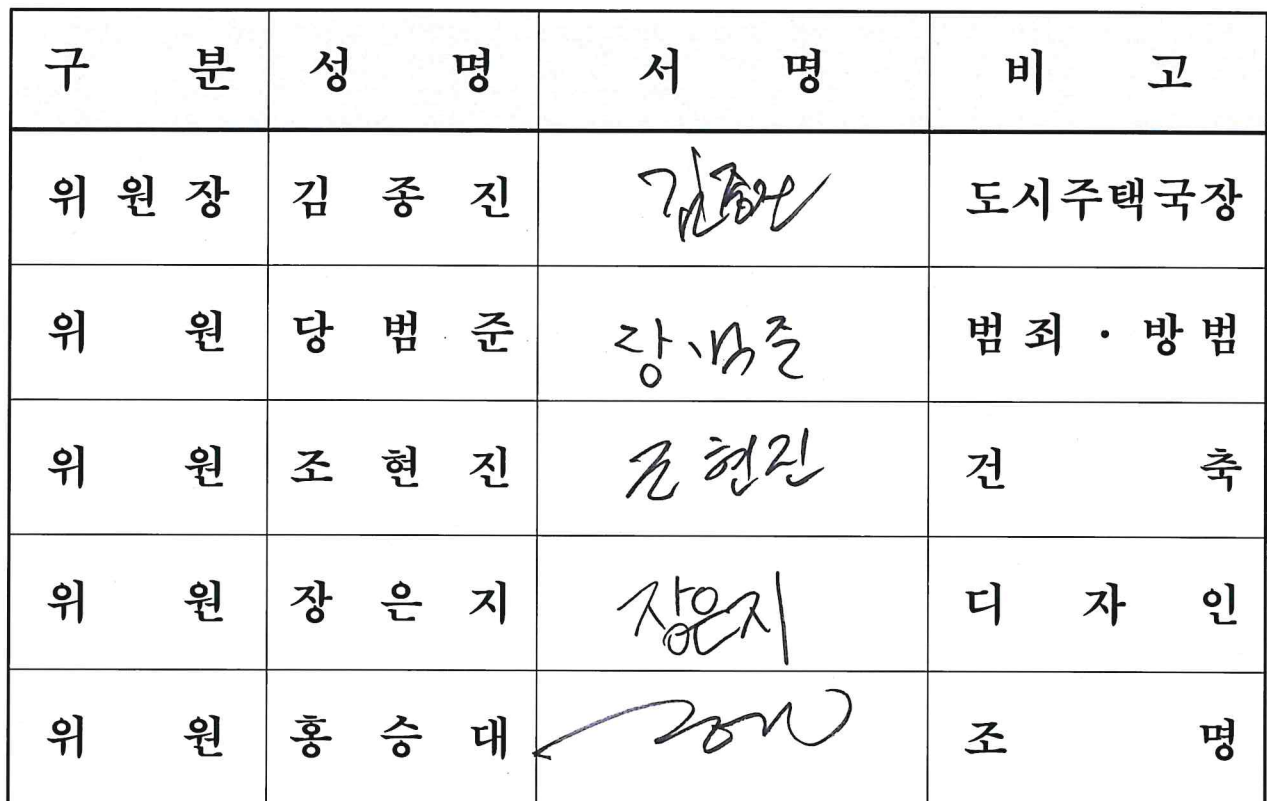 구 분 성 명 서 명 비 고
위 원 장 김 종 진 김종진 도시주택국장
위 원 당 범 준 당범준 범 죄 · 방 범
위 원 조 현 진 조현진 건 축
위 원 장 은 지 장은지 디 자 인
위 원 홍 승 대 조 명